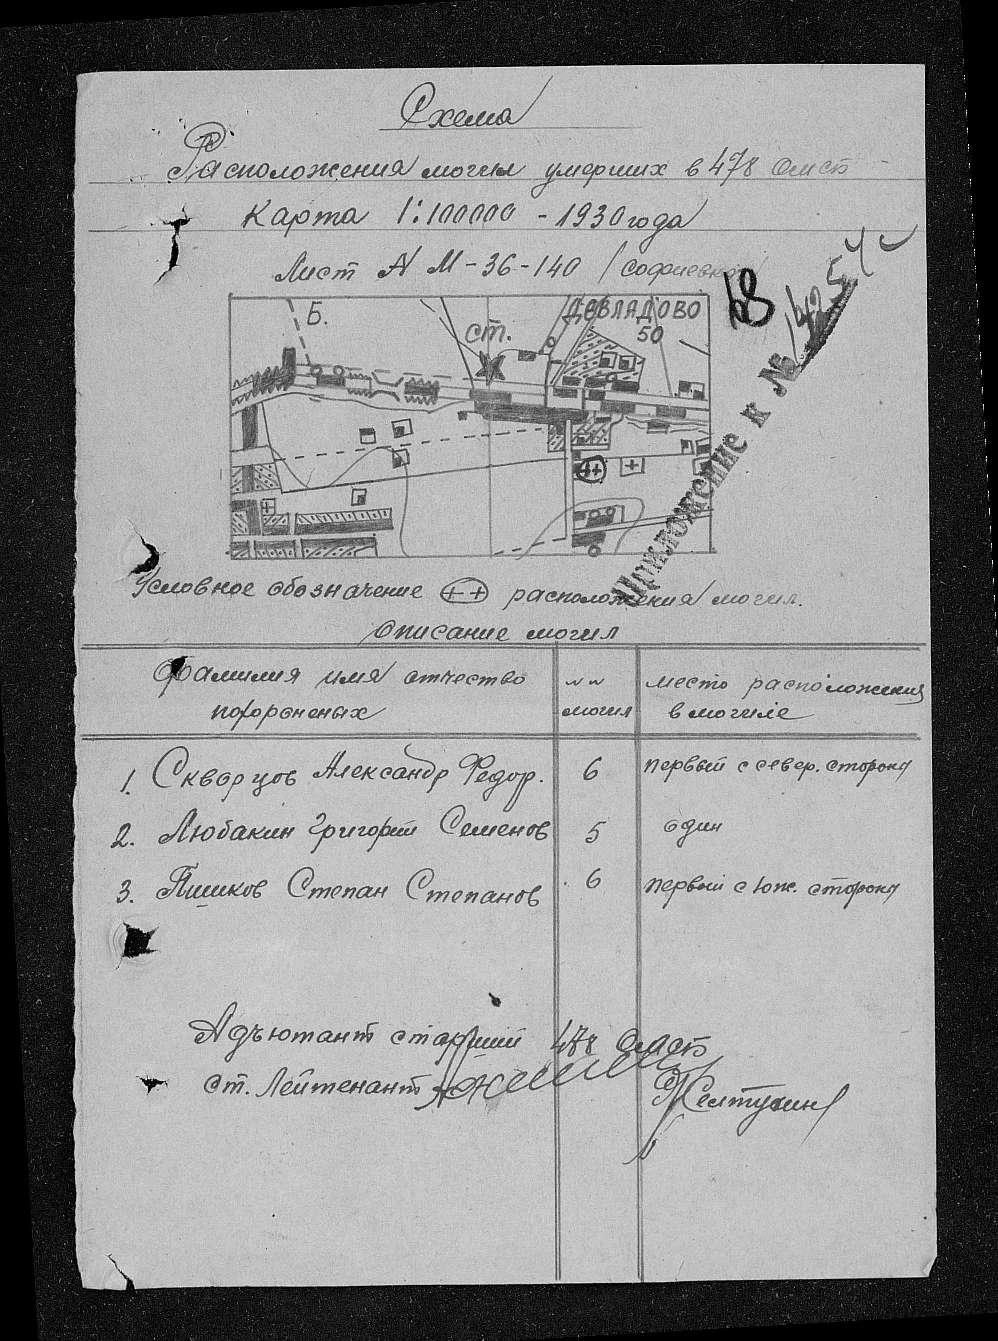 Схема
Расположения могил умерших в 478 омсб
Карта 1:100000 - 1930 года
Лист № М-36-140 /Софиевка/
18
Приложение к №
Б.
ст.
ДЕВЛАДОВО
50
Условное обозначение ++ расположения могил.
Описание могил
Фамилия имя отчество похороненых
№№ могил
место расположения в могиле
1. Скворцов Александр Федор. 6 первый с север. стороны
2. Любакин Григорий Семенов 5 один
3. Пишков Степан Степанов 6 первый с юж. стороны
Адъютант старший 478 омсб
ст. Лейтенант Желтухин